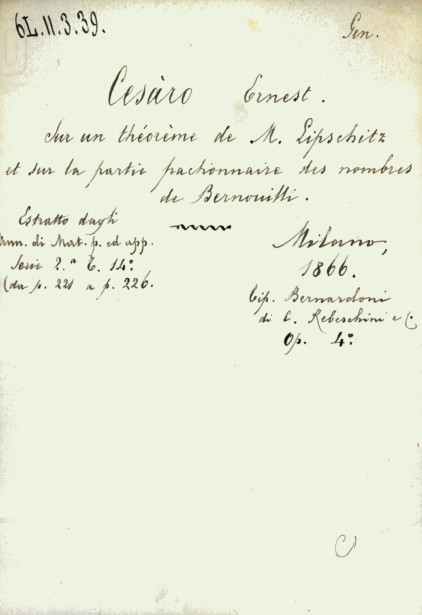 6L.11.3.39.
Gen.
Cesàro Ernest.
Sur un théorème de M. Lipschitz
et sur la partie fractionnaire des nombres
de Bernouilli.
Estratto dagli
Ann. di Mat. p. ed app.
Serie 2.ª t. 14º.
(da p. 221 a p. 226.
Milano,
1866.
Tip. Bernardoni
di C. Rebeschini e C.
Op. 4º.
C